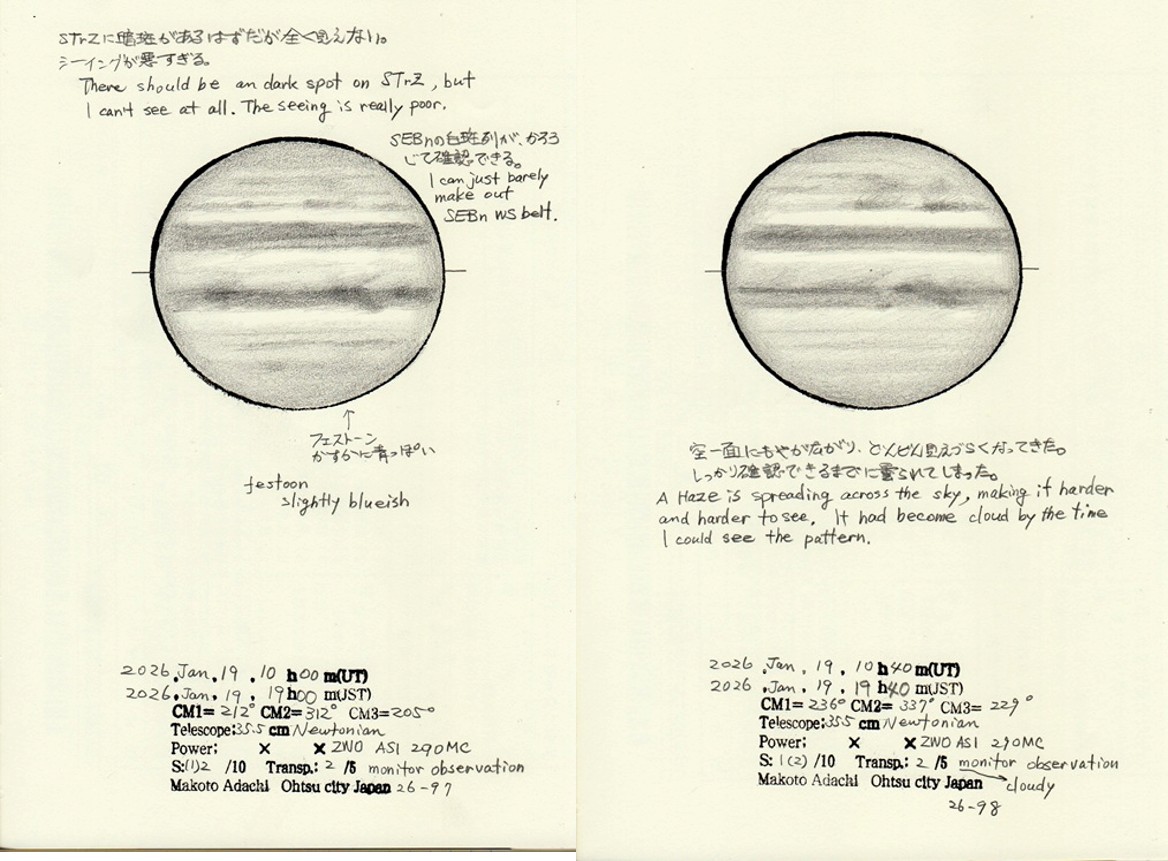 STrZに暗斑があるはずだが全く見えない。
シーイングが悪すぎる。
There should be an dark spot on STrZ, but
I can't see at all. The seeing is really poor.
SEBnの白斑列が、かろう
じて確認できる。
I can just barely
make out
SEBn WS belt.
↑
フェストーン
かすかに青っぽい
festoon
slightly blueish
2026.Jan.19.10h00m(UT)
2026.Jan.19.19h00m(JST)
CM1=212° CM2=312° CM3=205°
Telescope:35.5cm Newtonian
Power: × × ZWO ASI 290MC
S:(1)2 /10 Transp.: 2 /5 monitor observation
Makoto Adachi Ohtsu city Japan 26-97
空一面にもやが広がり、どんどん見えづらくなってきた。
しっかり確認できるまでに曇られてしまった。
A Haze is spreading across the sky, making it harder
and harder to see. It had become cloud by the time
I could see the pattern.
2026.Jan.19.10h40m(UT)
2026.Jan.19.19h40m(JST)
CM1=236° CM2=337° CM3=229°
Telescope:35.5cm Newtonian
Power: × × ZWO ASI 290MC
S: 1(2) /10 Transp.: 2 /5 monitor observation
Makoto Adachi Ohtsu city Japan → cloudy
26-98